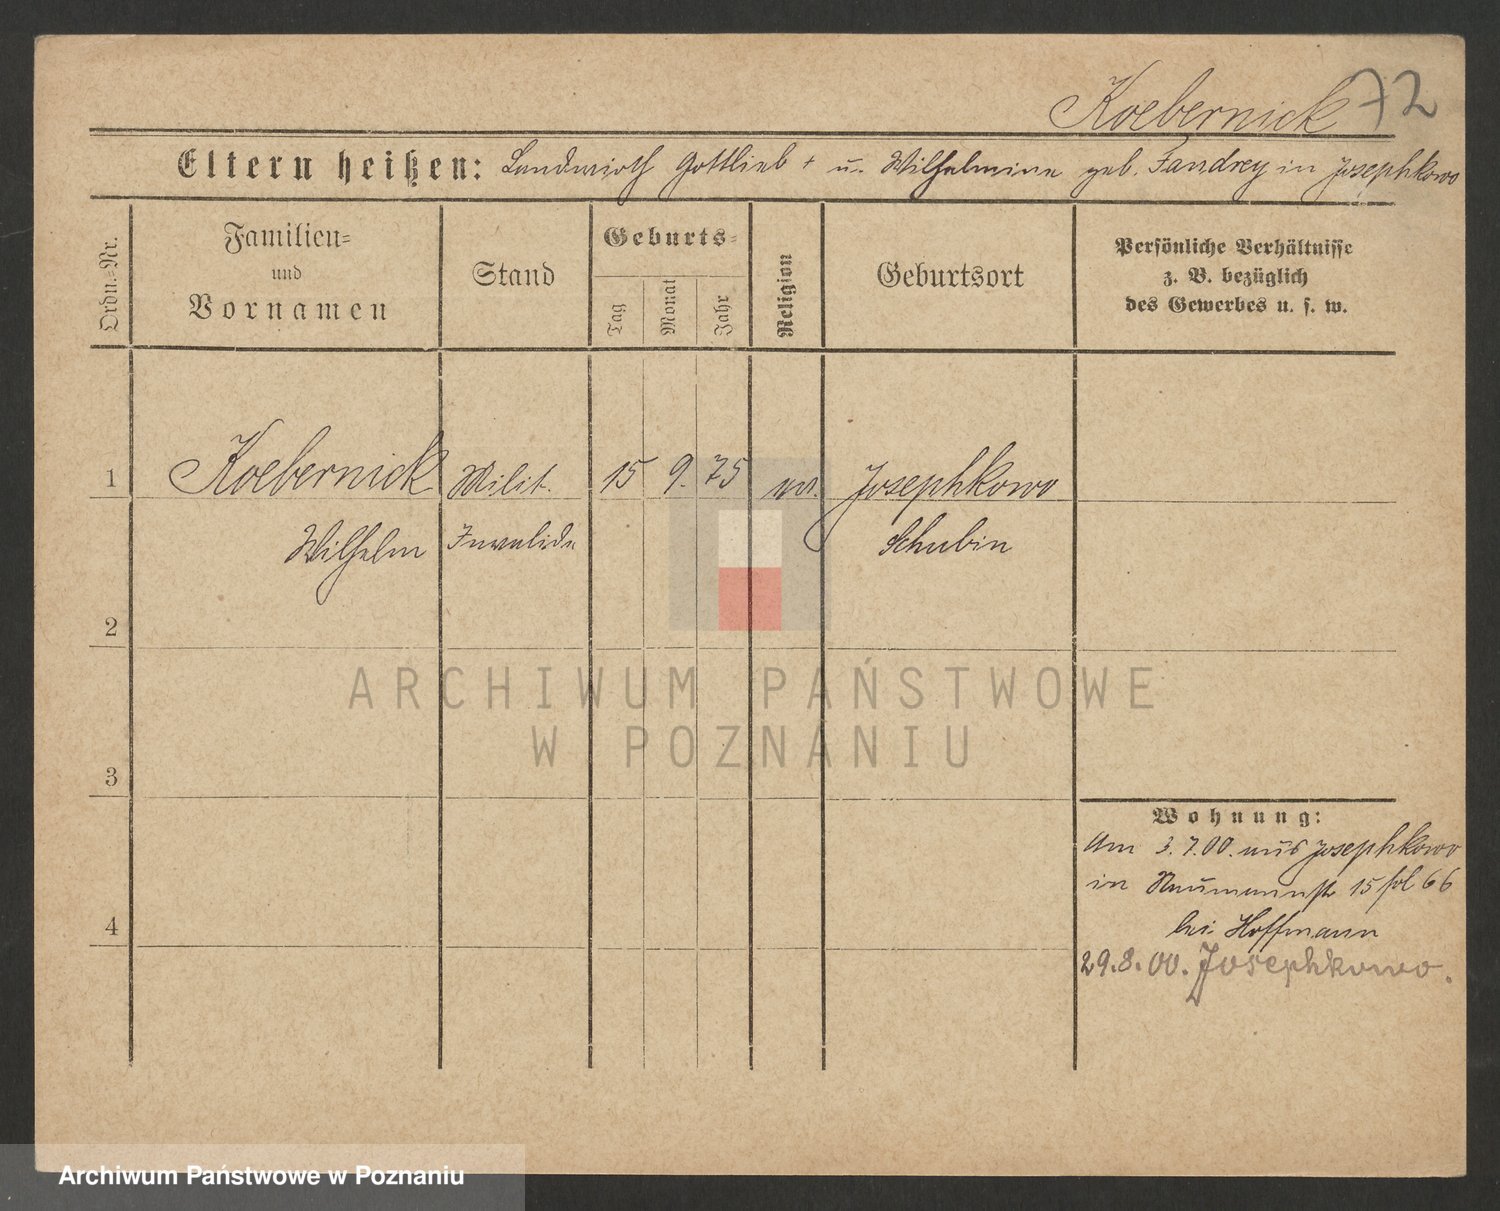 Koebernick 72
Eltern heißen: Landwirth Gottlieb + u. Wilhelmine geb. Fandrey in Josephkowo
Ordn.=Nr.
Familien=
und
Vornamen
Stand
Geburts=
Tag
Monat
Jahr
Religion
Geburtsort
Persönliche Verhältnisse
z. B. bezüglich
des Gewerbes u. s. w.
1 Koebernick Milit. 15 9. 75 ev. Josephkowo
Wilhelm Invalide Schubin
2
ARCHIWUM PAŃSTWOWE
W POZNANIU
3
Wohnung:
Am 3.7.00. aus Josephkowo
in Naumannstr 15 fol 66
4
bei Hoffmann
29.8.00. Josephkowo.
Archiwum Państwowe w Poznaniu